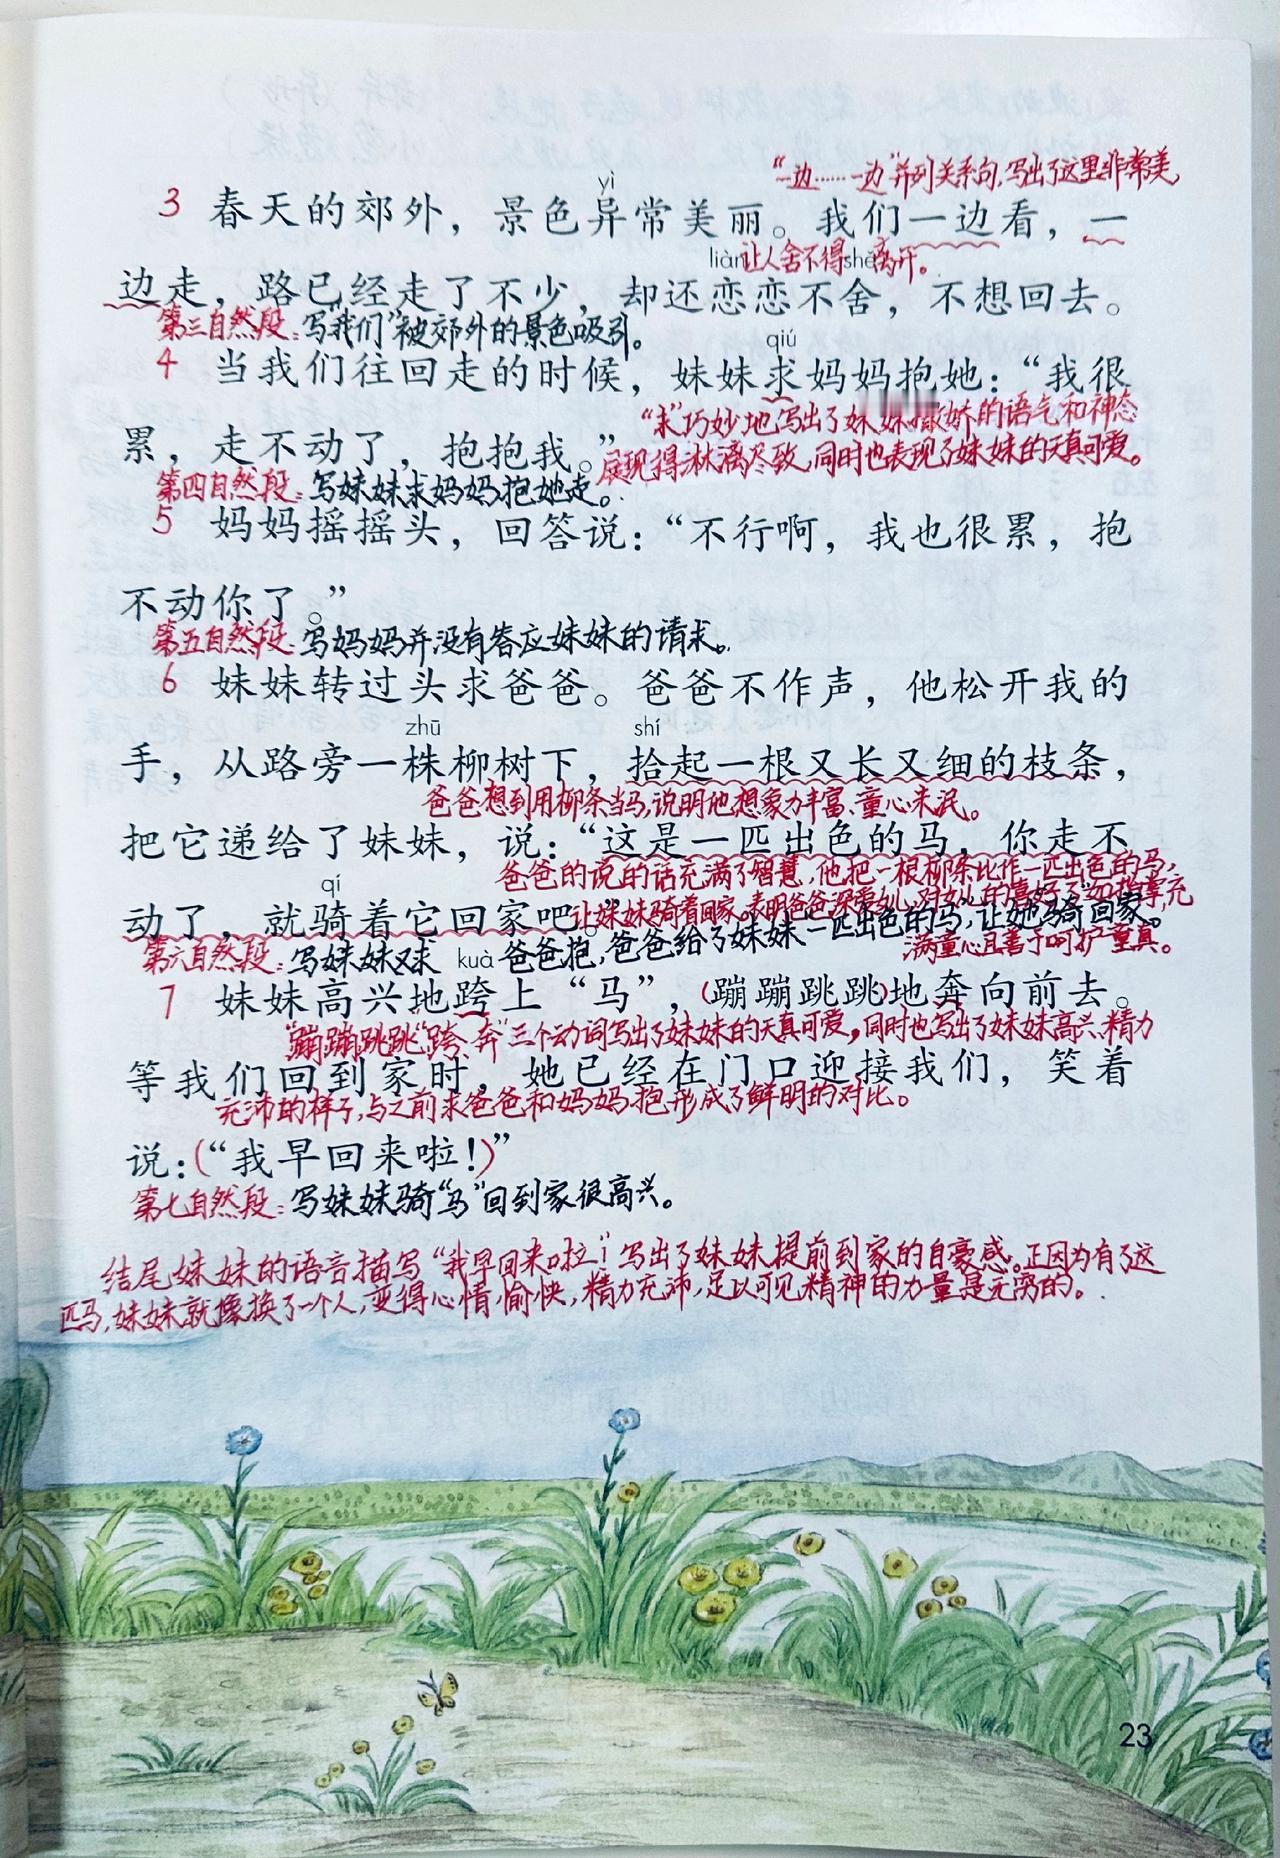 “一边……一边”并列关系句,写出了这里非常美,
yì
3 春天的郊外，景色异常美丽。我们一边看，一
让人舍不得离开。
liàn shě
边走，路已经走了不少，却还恋恋不舍，不想回去。
第三自然段:写“我们”被郊外的景色吸引。
qiú
4 当我们往回走的时候，妹妹求妈妈抱她：“我很
“求”巧妙地写出了妹妹撒娇的语气和神态
累，走不动了，抱抱我。”
展现得淋漓尽致,同时也表现了妹妹的天真可爱。
第四自然段:写妹妹求妈妈抱她走。
5 妈妈摇摇头，回答说：“不行啊，我也很累，抱
不动你了。”
第五自然段:写妈妈并没有答应妹妹的请求。
6 妹妹转过头求爸爸。爸爸不作声，他松开我的
zhū shí
手，从路旁一株柳树下，拾起一根又长又细的枝条，
爸爸想到用柳条当马,说明他想象力丰富、童心未泯。
把它递给了妹妹，说：“这是一匹出色的马，你走不
爸爸的说的话充满了智慧,他把一根柳条比作一匹出色的马,
qí
动了，就骑着它回家吧。”
让妹妹骑着回家。表明爸爸深爱女儿,对女儿的喜好了如指掌,充
满童心且善于呵护童真。
第六自然段:写妹妹又求爸爸抱,爸爸给了妹妹一匹出色的马,让她骑回家。
kuà
7 妹妹高兴地跨上“马”，(蹦蹦跳跳)地奔向前去。
“蹦蹦跳跳”“跨、奔”三个动词写出了妹妹的天真可爱,同时也写出了妹妹高兴、精力
等我们回到家时，她已经在门口迎接我们，笑着
充沛的样子,与之前求爸爸和妈妈抱形成了鲜明的对比。
说：(“我早回来啦！)”
第七自然段:写妹妹骑“马”回到家很高兴。
结尾妹妹的语言描写“我早回来啦!”写出了妹妹提前到家的自豪感。正因为有了这
匹马,妹妹就像换了一个人,变得心情愉快,精力充沛,足以可见精神的力量是无穷的。
23